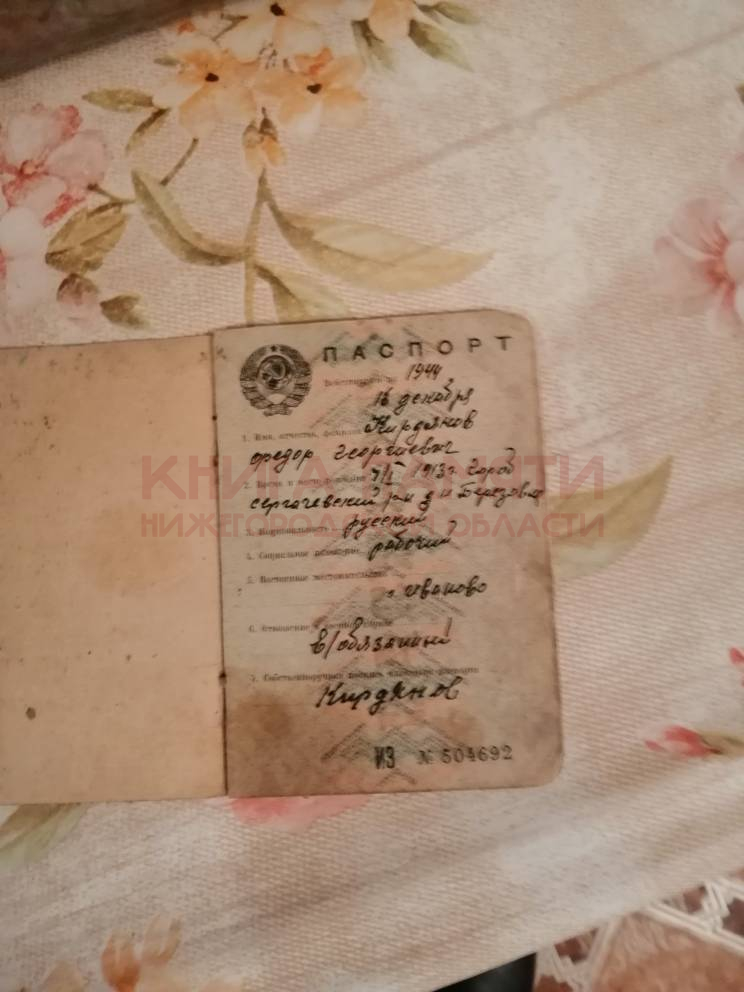 ПАСПОРТ
Действителен по 1944
16 декабря
1. Имя, отчество, фамилия Кирдянов
Федор Георгиевич
2. Время и место рождения 1913г. Город
Сергачевский р-н д
3. Национальность русский
4. Социальное положение рабочий
5. Постоянное местожительство
г. Иваново
6. Отношение к военной службе
в/обязанный
7. Собственноручная подпись владельца паспорта
Кирдянов
ИЗ № 504692
КНИГА ПАМЯТИ
НИЖЕГОРОДСКОЙ ОБЛАСТИ